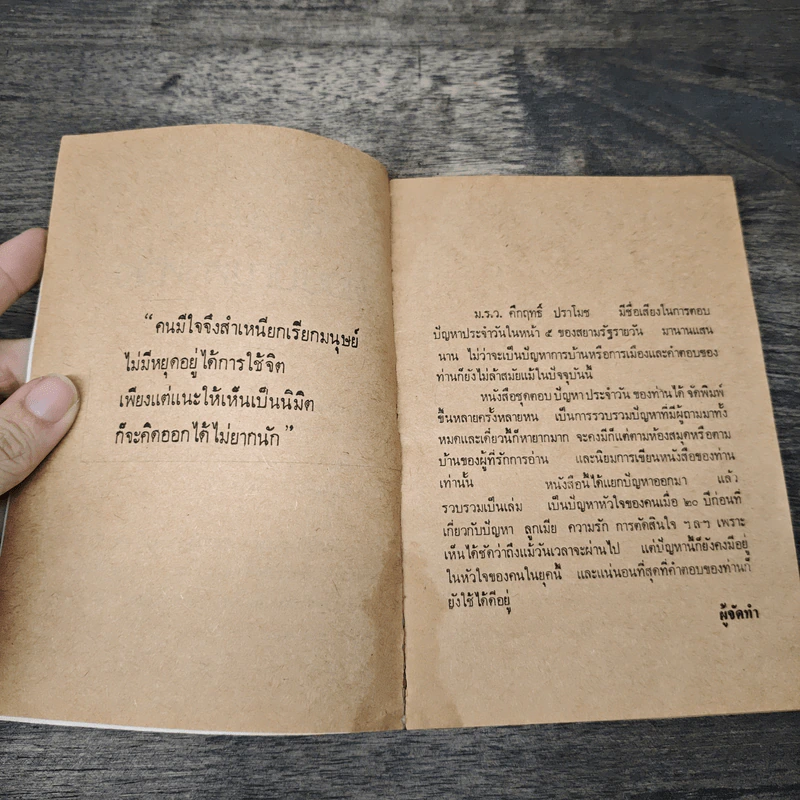 “ คนมีใจจึงสำเหนียกเรียกมนุษย์
ไม่มีหยุดอยู่ได้การใช้จิต
เพียงแต่แนะให้เห็นเป็นนิมิต
ก็จะคิดออกได้ไม่ยากนัก ”
ม.ร.ว. คึกฤทธิ์ ปราโมช มีชื่อเสียงในการตอบ
ปัญหาประจำวันในหน้า ๕ ของสยามรัฐรายวัน มานานแสน
นาน ไม่ว่าจะเป็นปัญหาการบ้านหรือการเมืองและคำตอบของ
ท่านก็ยังไม่ล้าสมัยแม้ในปัจจุบันนี้
หนังสือชุดตอบ ปัญหา ประจำวัน ของท่านได้ จัดพิมพ์
ขึ้นหลายครั้งหลายหน เป็นการรวบรวมปัญหาที่มีผู้ถามมาทั้ง
หมดและเดี๋ยวนี้ก็หายากมาก จะคงมีก็แต่ตามห้องสมุดหรือตาม
บ้านของผู้ที่รักการอ่าน และนิยมการเขียนหนังสือของท่าน
เท่านั้น หนังสือนี้ได้แยกปัญหาออกมา แล้ว
รวบรวมเป็นเล่ม เป็นปัญหาหัวใจของคนเมื่อ ๒๐ ปีก่อนที่
เกี่ยวกับปัญหา ลูกเมีย ความรัก การตัดสินใจ ฯลฯ เพราะ
เห็นได้ชัดว่าถึงแม้วันเวลาจะผ่านไป แต่ปัญหานี้ก็ยังคงมีอยู่
ในหัวใจของคนในยุคนี้ และแน่นอนที่สุดที่คำตอบของท่านก็
ยังใช้ได้ดีอยู่
ผู้จัดทำ